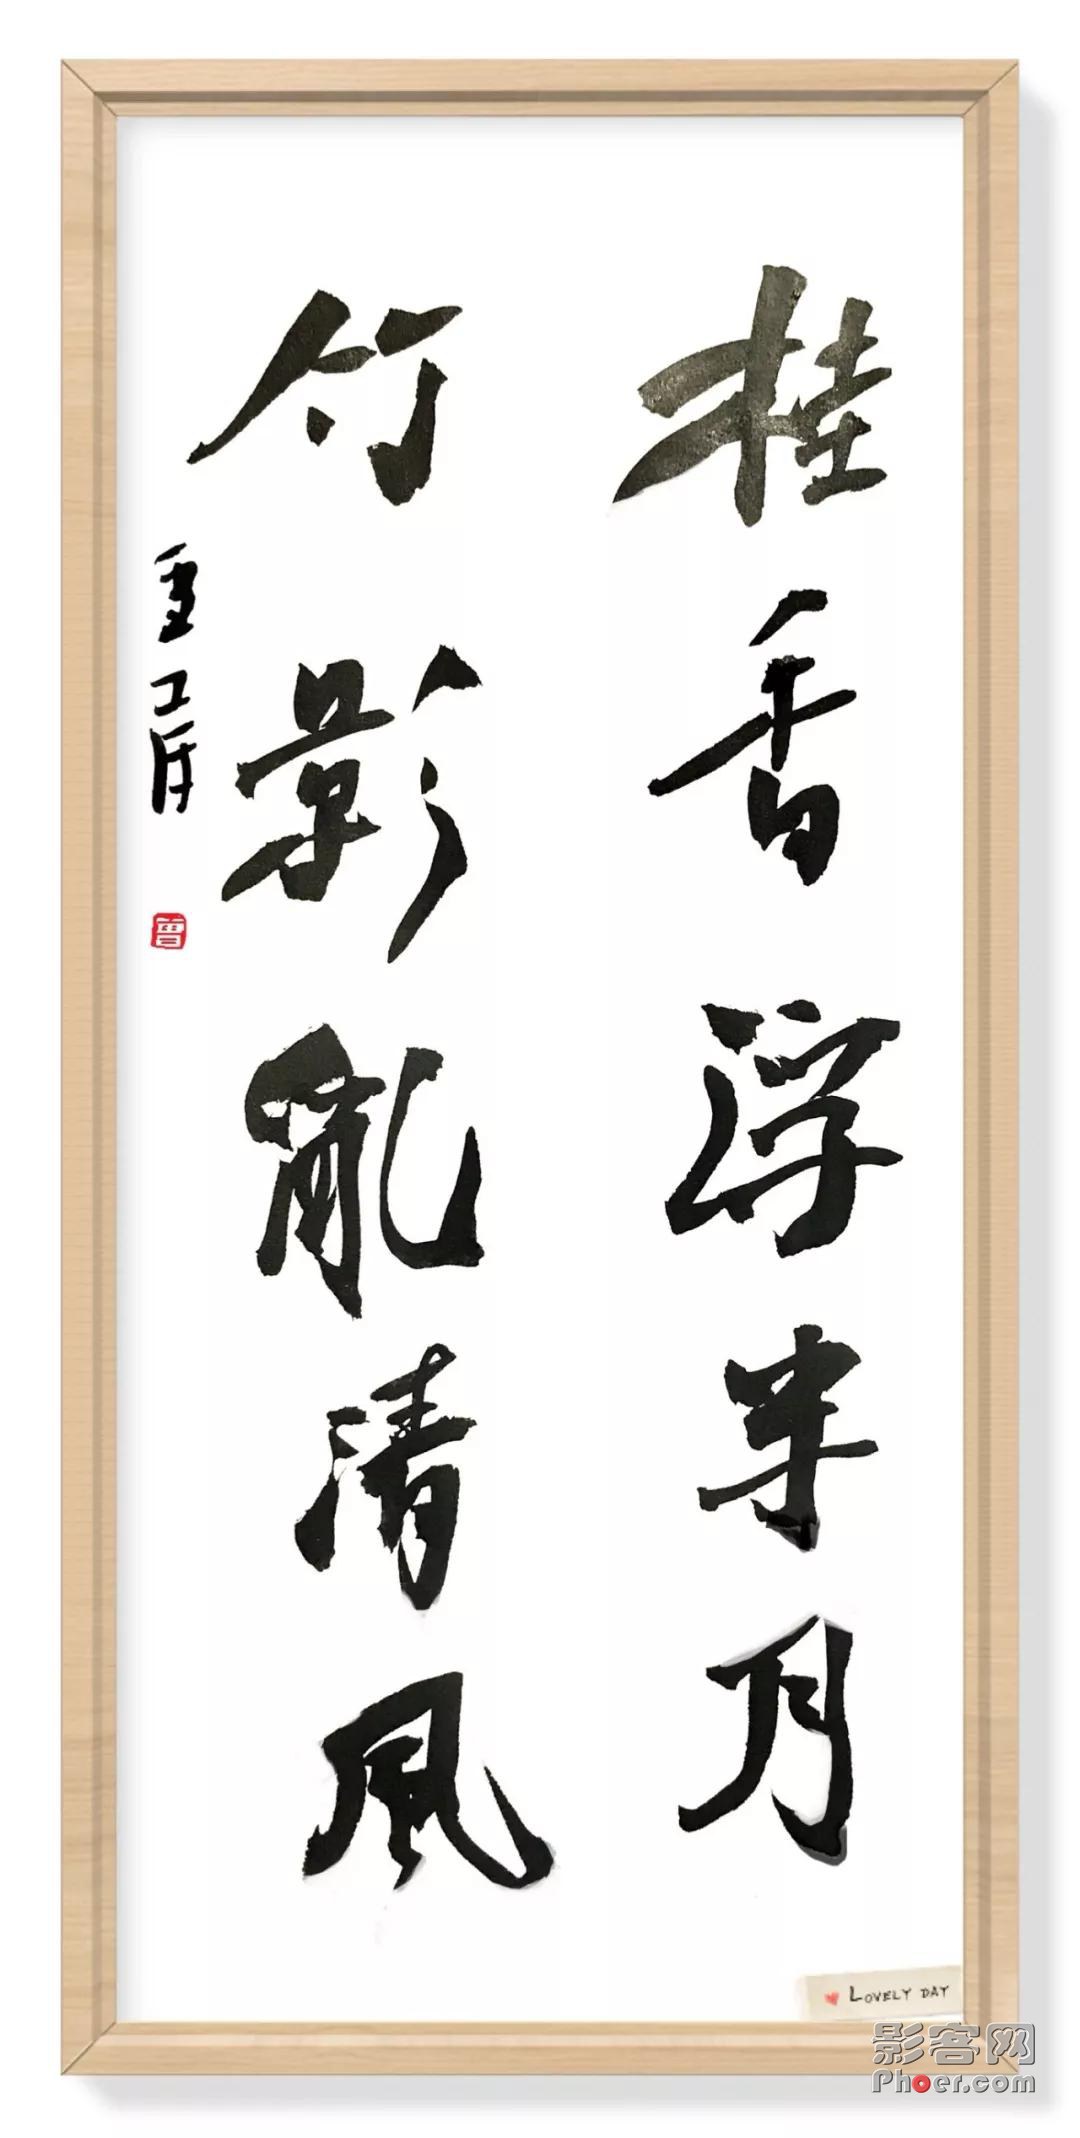 桂香浮半月
竹影亂清风
曾
♥ LOVELY DAY
影客网
Phoer.com